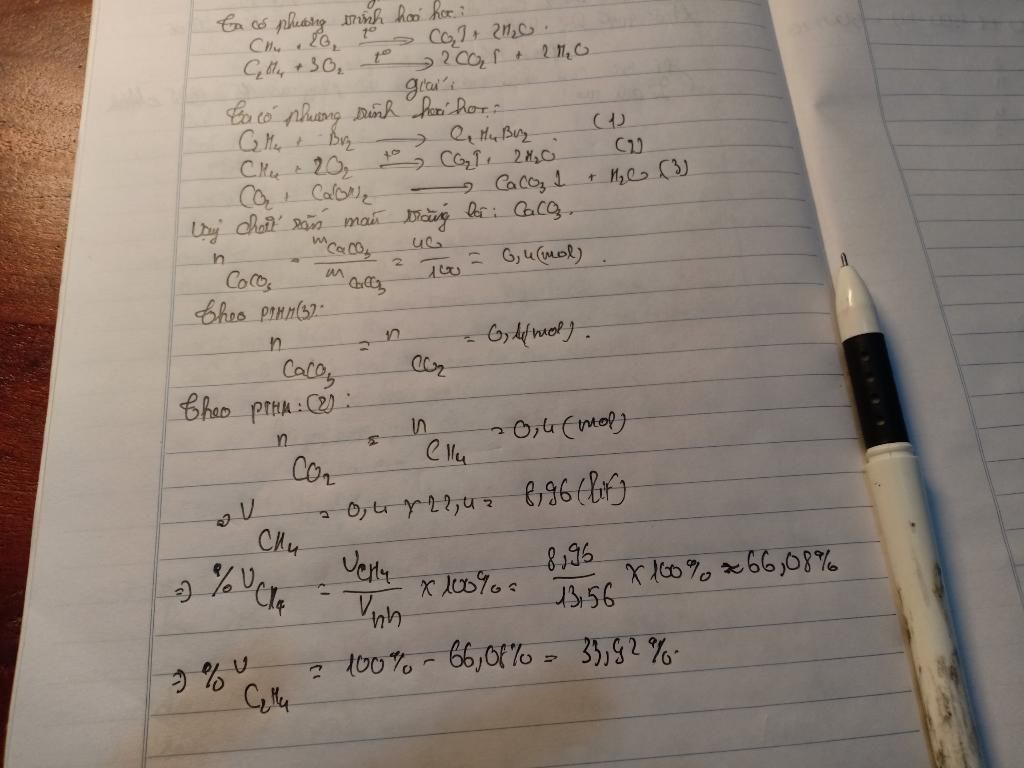 Ta có phương trình hoá học:
CH₄ + 2O₂ –t°→ CO₂↑ + 2H₂O.
C₂H₄ + 3O₂ –t°→ 2CO₂↑ + 2H₂O
giải:
Ta có phương trình hoá học:
C₂H₄ + Br₂ → C₂H₄Br₂ (1)
CH₄ + 2O₂ –t°→ CO₂↑ + 2H₂O (2)
CO₂ + Ca(OH)₂ → CaCO₃↓ + H₂O (3)
Vậy chất rắn màu trắng là: CaCO₃.
n CaCO₃ = m CaCO₃ / m CaCO₃ = 40/100 = 0,4(mol).
Theo PTHH(3):
n CaCO₃ = n CO₂ = 0,4(mol).
Theo PTHH:(2):
n CO₂ = n CH₄ = 0,4(mol)
⇒ V CH₄ = 0,4 × 22,4 = 8,96(lít)
⇒ %V CH₄ = V CH₄ / Vhh × 100% = 8,96 / 13,56 × 100% ≈ 66,08%
⇒ %V C₂H₄ = 100% - 66,08% = 33,92%.